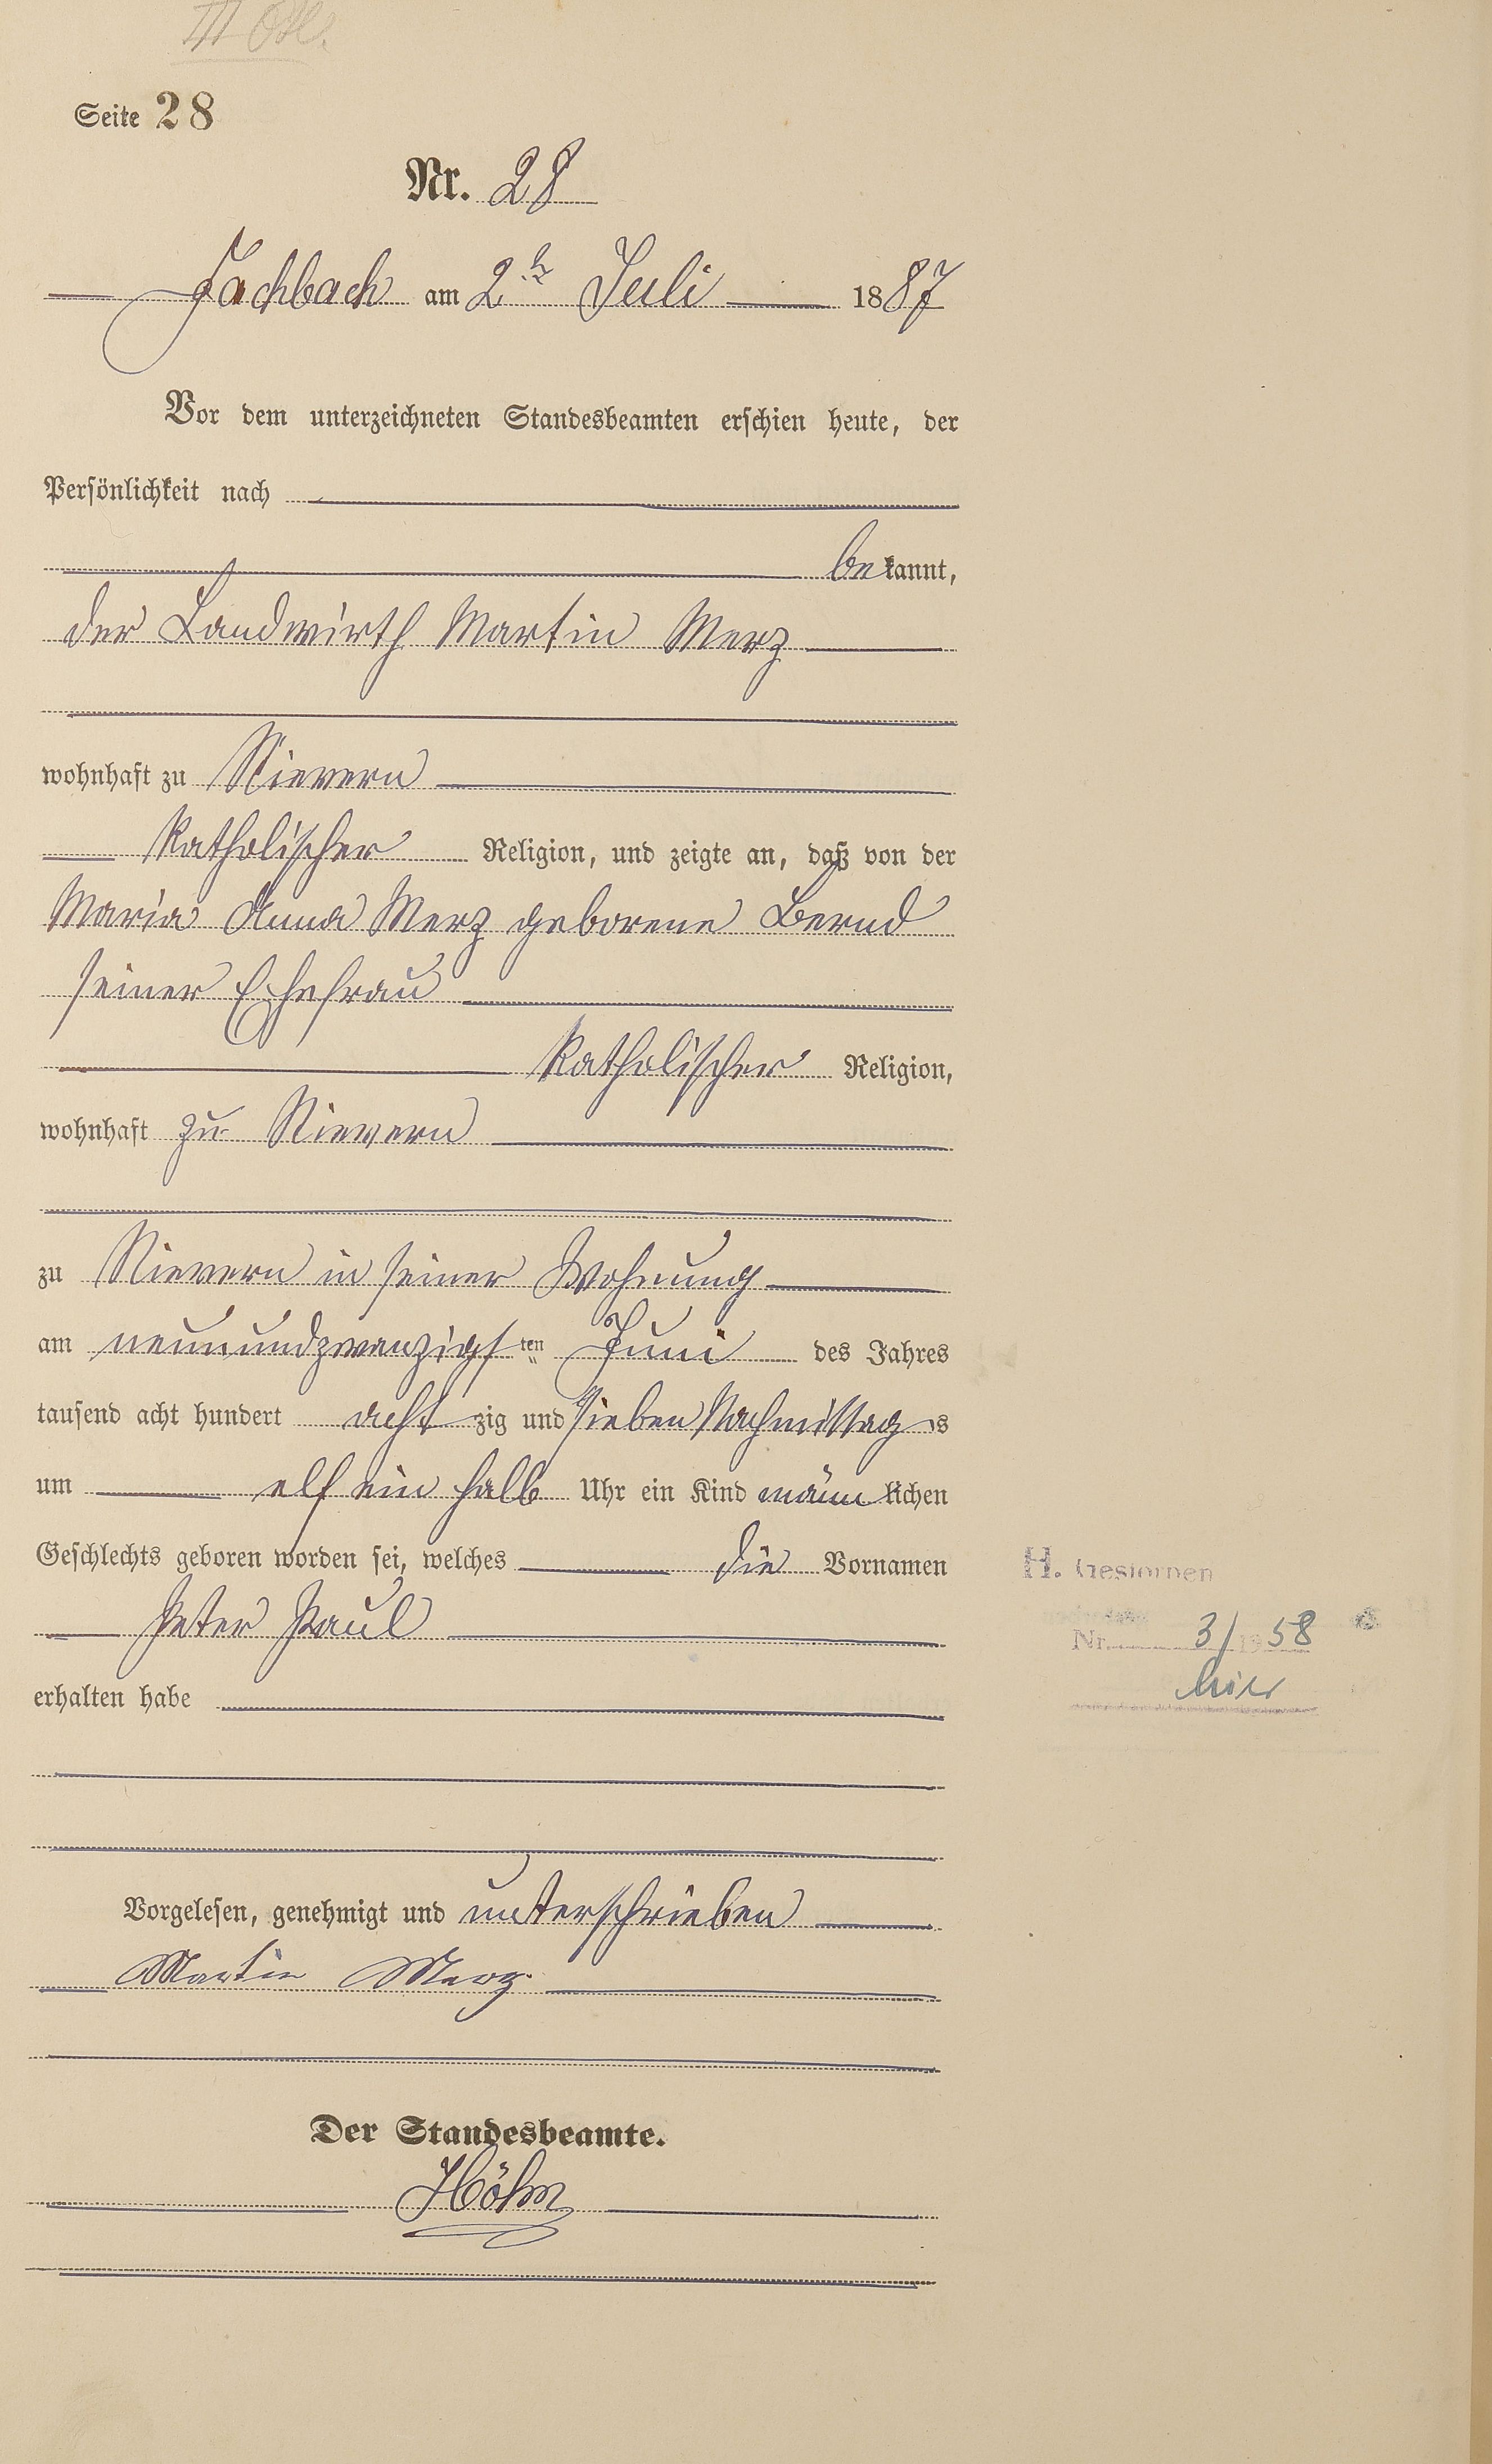 Seite 28
Nr. 28
Fachbach am 2ten Juli 1887
Vor dem unterzeichneten Standesbeamten erschien heute, der
Persönlichkeit nach
bekannt,
der Landwirth Martin Merz
wohnhaft zu Nievern
katholischer Religion, und zeigte an, daß von der
Maria Anna Merz geborene Bernd
seiner Ehefrau
katholischer Religion,
wohnhaft zu Nievern
zu Nievern in seiner Wohnung
am neunundzwanzigsten Juni des Jahres
tausend acht hundert acht zig und sieben Nachmittags
um elf ein halb Uhr ein Kind männlichen
Geschlechts geboren worden sei, welches die Vornamen
Peter Paul
erhalten habe
H. Gestorben
Nr. 3/1958
hier
Vorgelesen, genehmigt und unterschrieben
Martin Merz
Der Standesbeamte.
Höhn